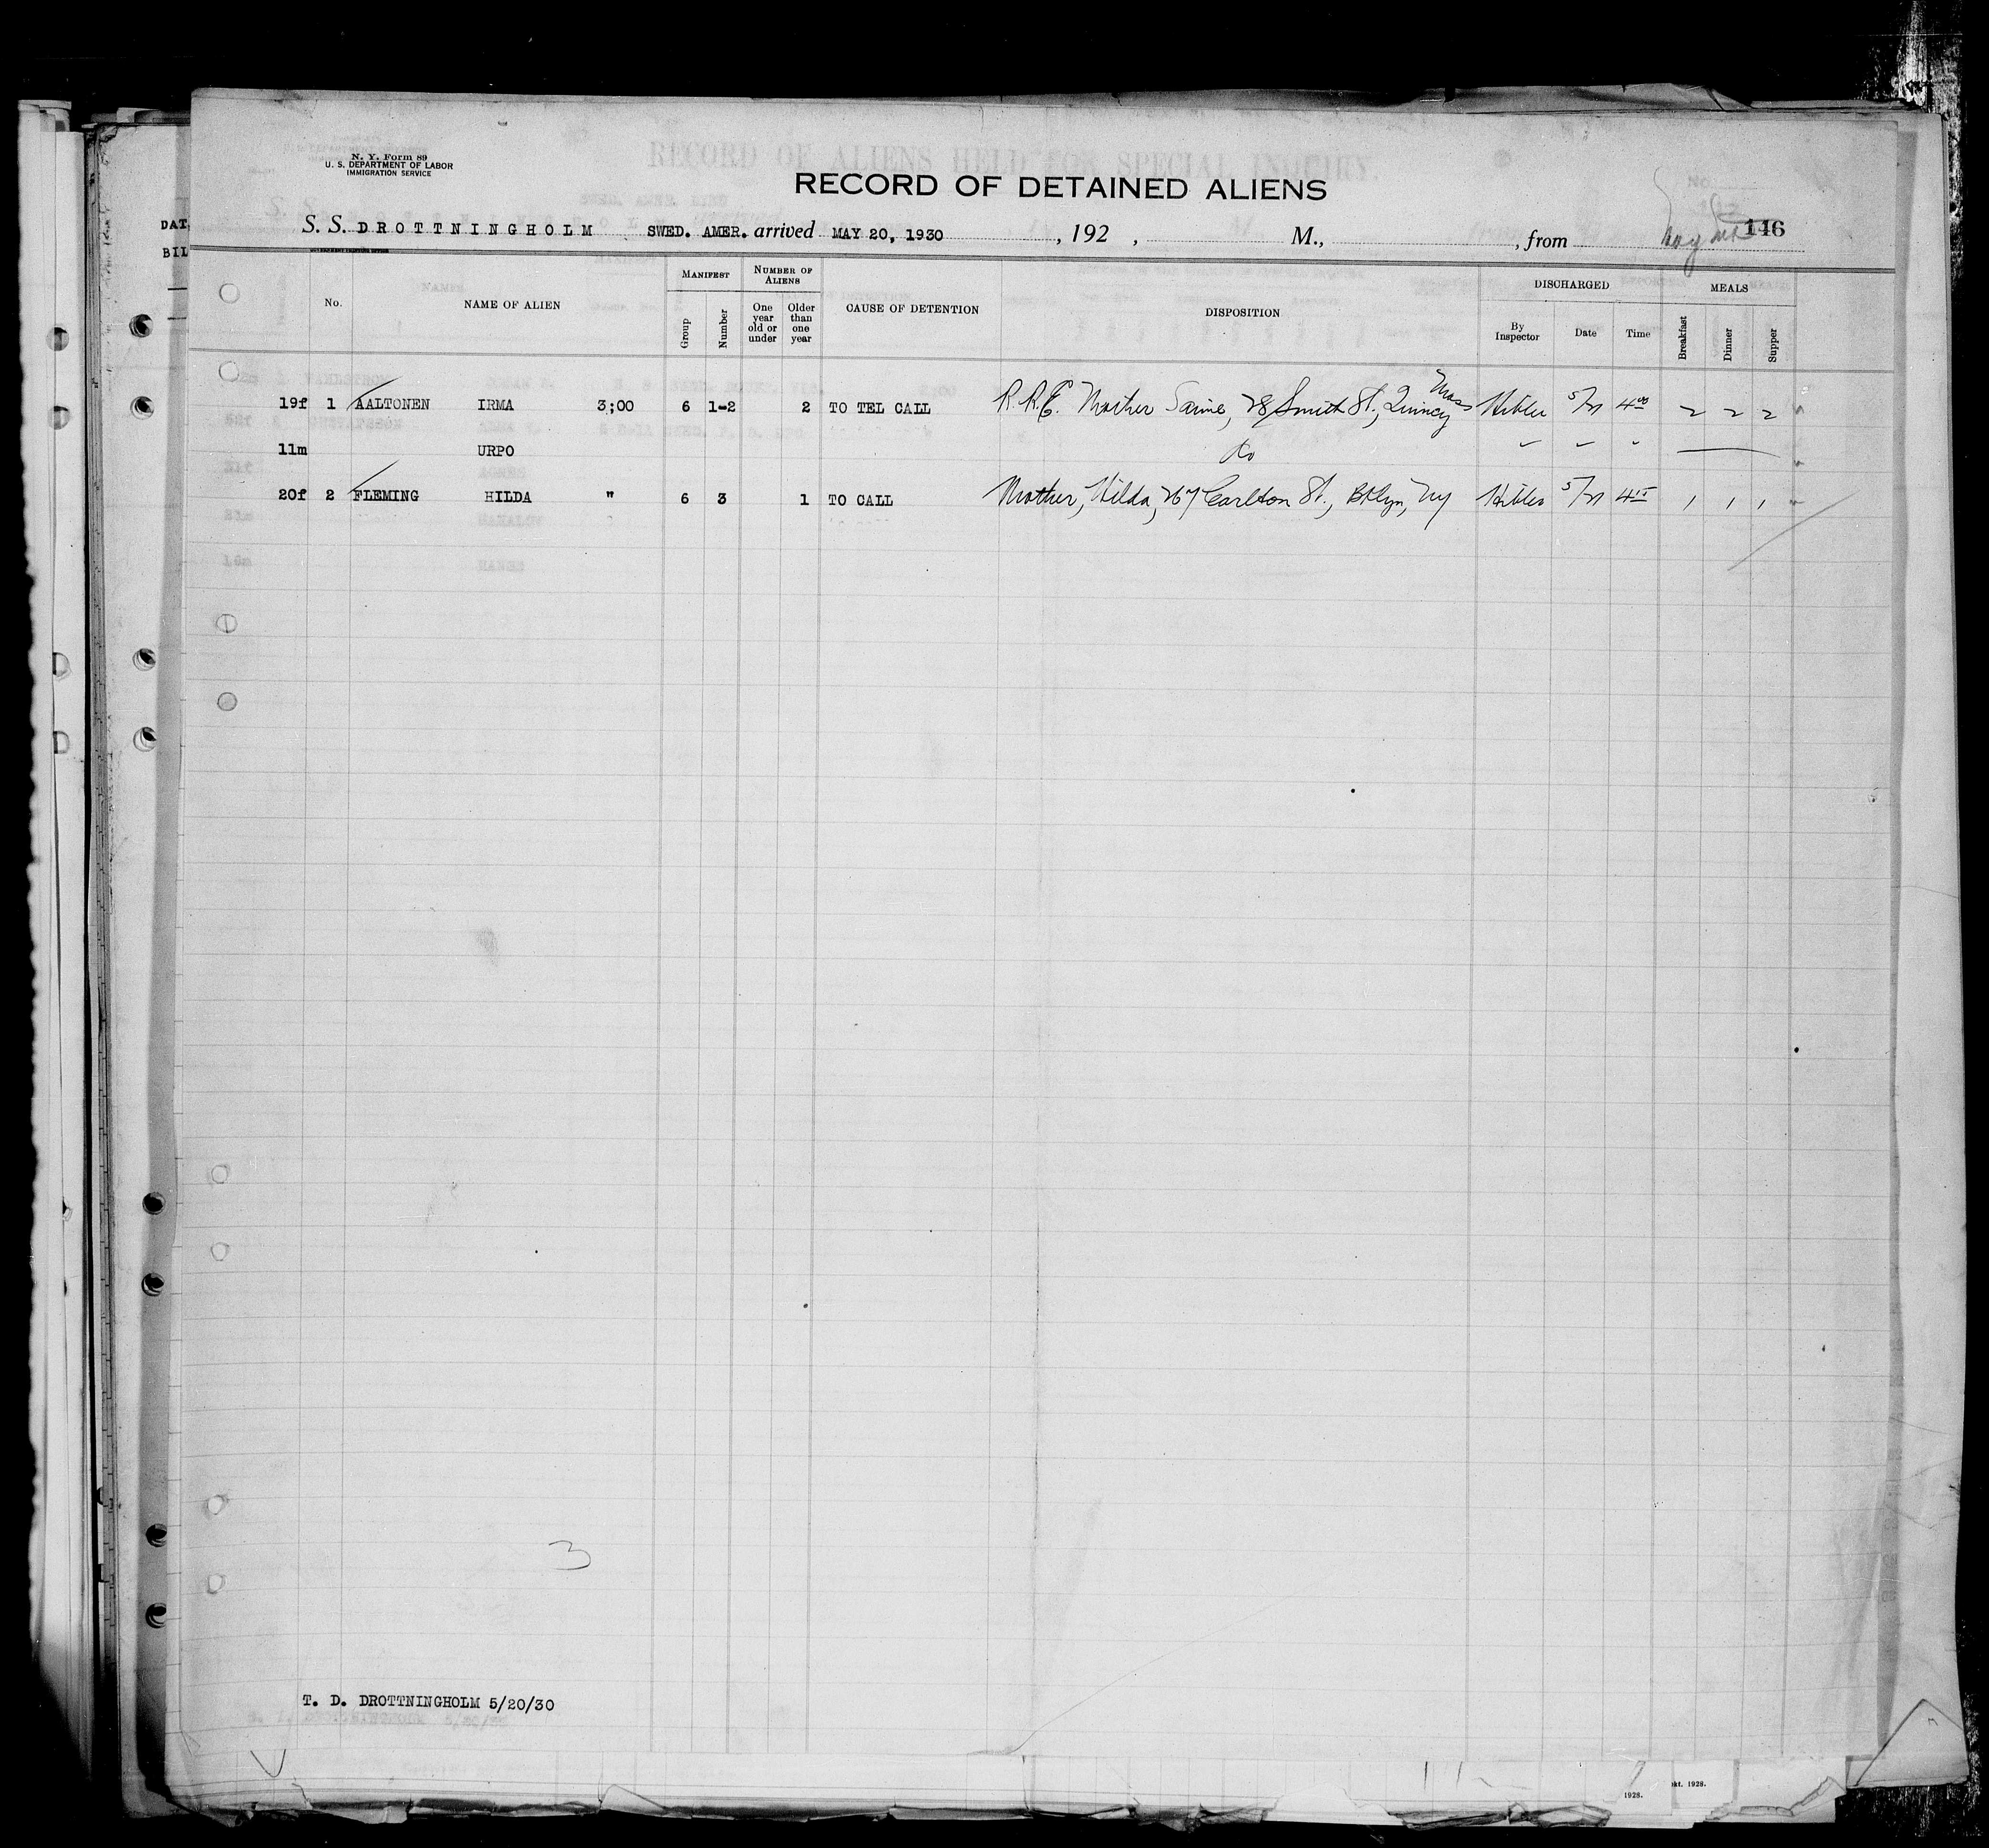 N. Y. Form 89
U. S. DEPARTMENT OF LABOR
IMMIGRATION SERVICE
RECORD OF ALIENS HELD FOR SPECIAL INQUIRY.
RECORD OF DETAINED ALIENS
146
S. S. DROTTNINGHOLM SWED. AMER. arrived MAY 20, 1930, 192 , M., , from
DAT
BIL
No. NAME OF ALIEN MANIFEST NUMBER OF ALIENS CAUSE OF DETENTION DISPOSITION DISCHARGED MEALS
Group Number One year old or under Older than one year By Inspector Date Time Breakfast Dinner Supper
19f 1 AALTONEN IRMA 3;00 6 1-2 2 TO TEL CALL R.R.E. Mother Saime, 28 Smith St., Quincy Mass Hibler 5/21 4 00 2 2 2
11m URPO do " " "
20f 2 FLEMING HILDA " 6 3 1 TO CALL Mother, Hilda, 267 Carlton St., Bklyn, Ny Hibler 5/21 4 15 1 1 1
3
T. D. DROTTNINGHOLM 5/20/30
1928.
okt. 1928.